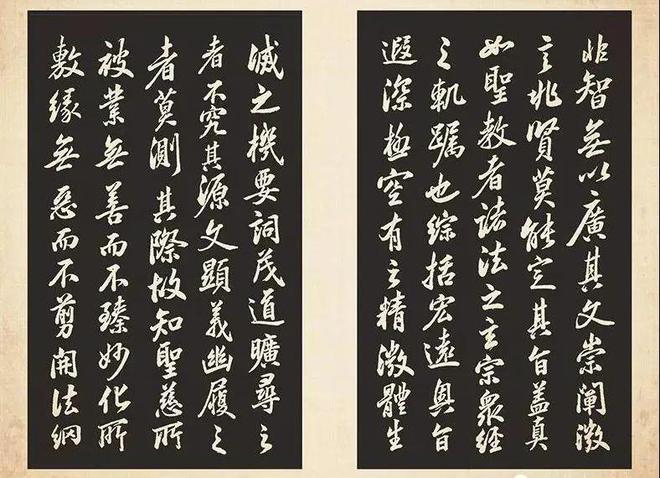 非智無以廣其文崇闡微
言非賢莫能定其旨蓋真
如聖教者諸法之玄宗眾經
之軌躅也綜括宏遠奧旨
遐深極空有之精微體生
滅之機要詞茂道曠尋之
者不究其源文顯義幽履之
者莫測其際故知聖慈所
被業無善而不臻妙化所
敷緣無惡而不剪開法網